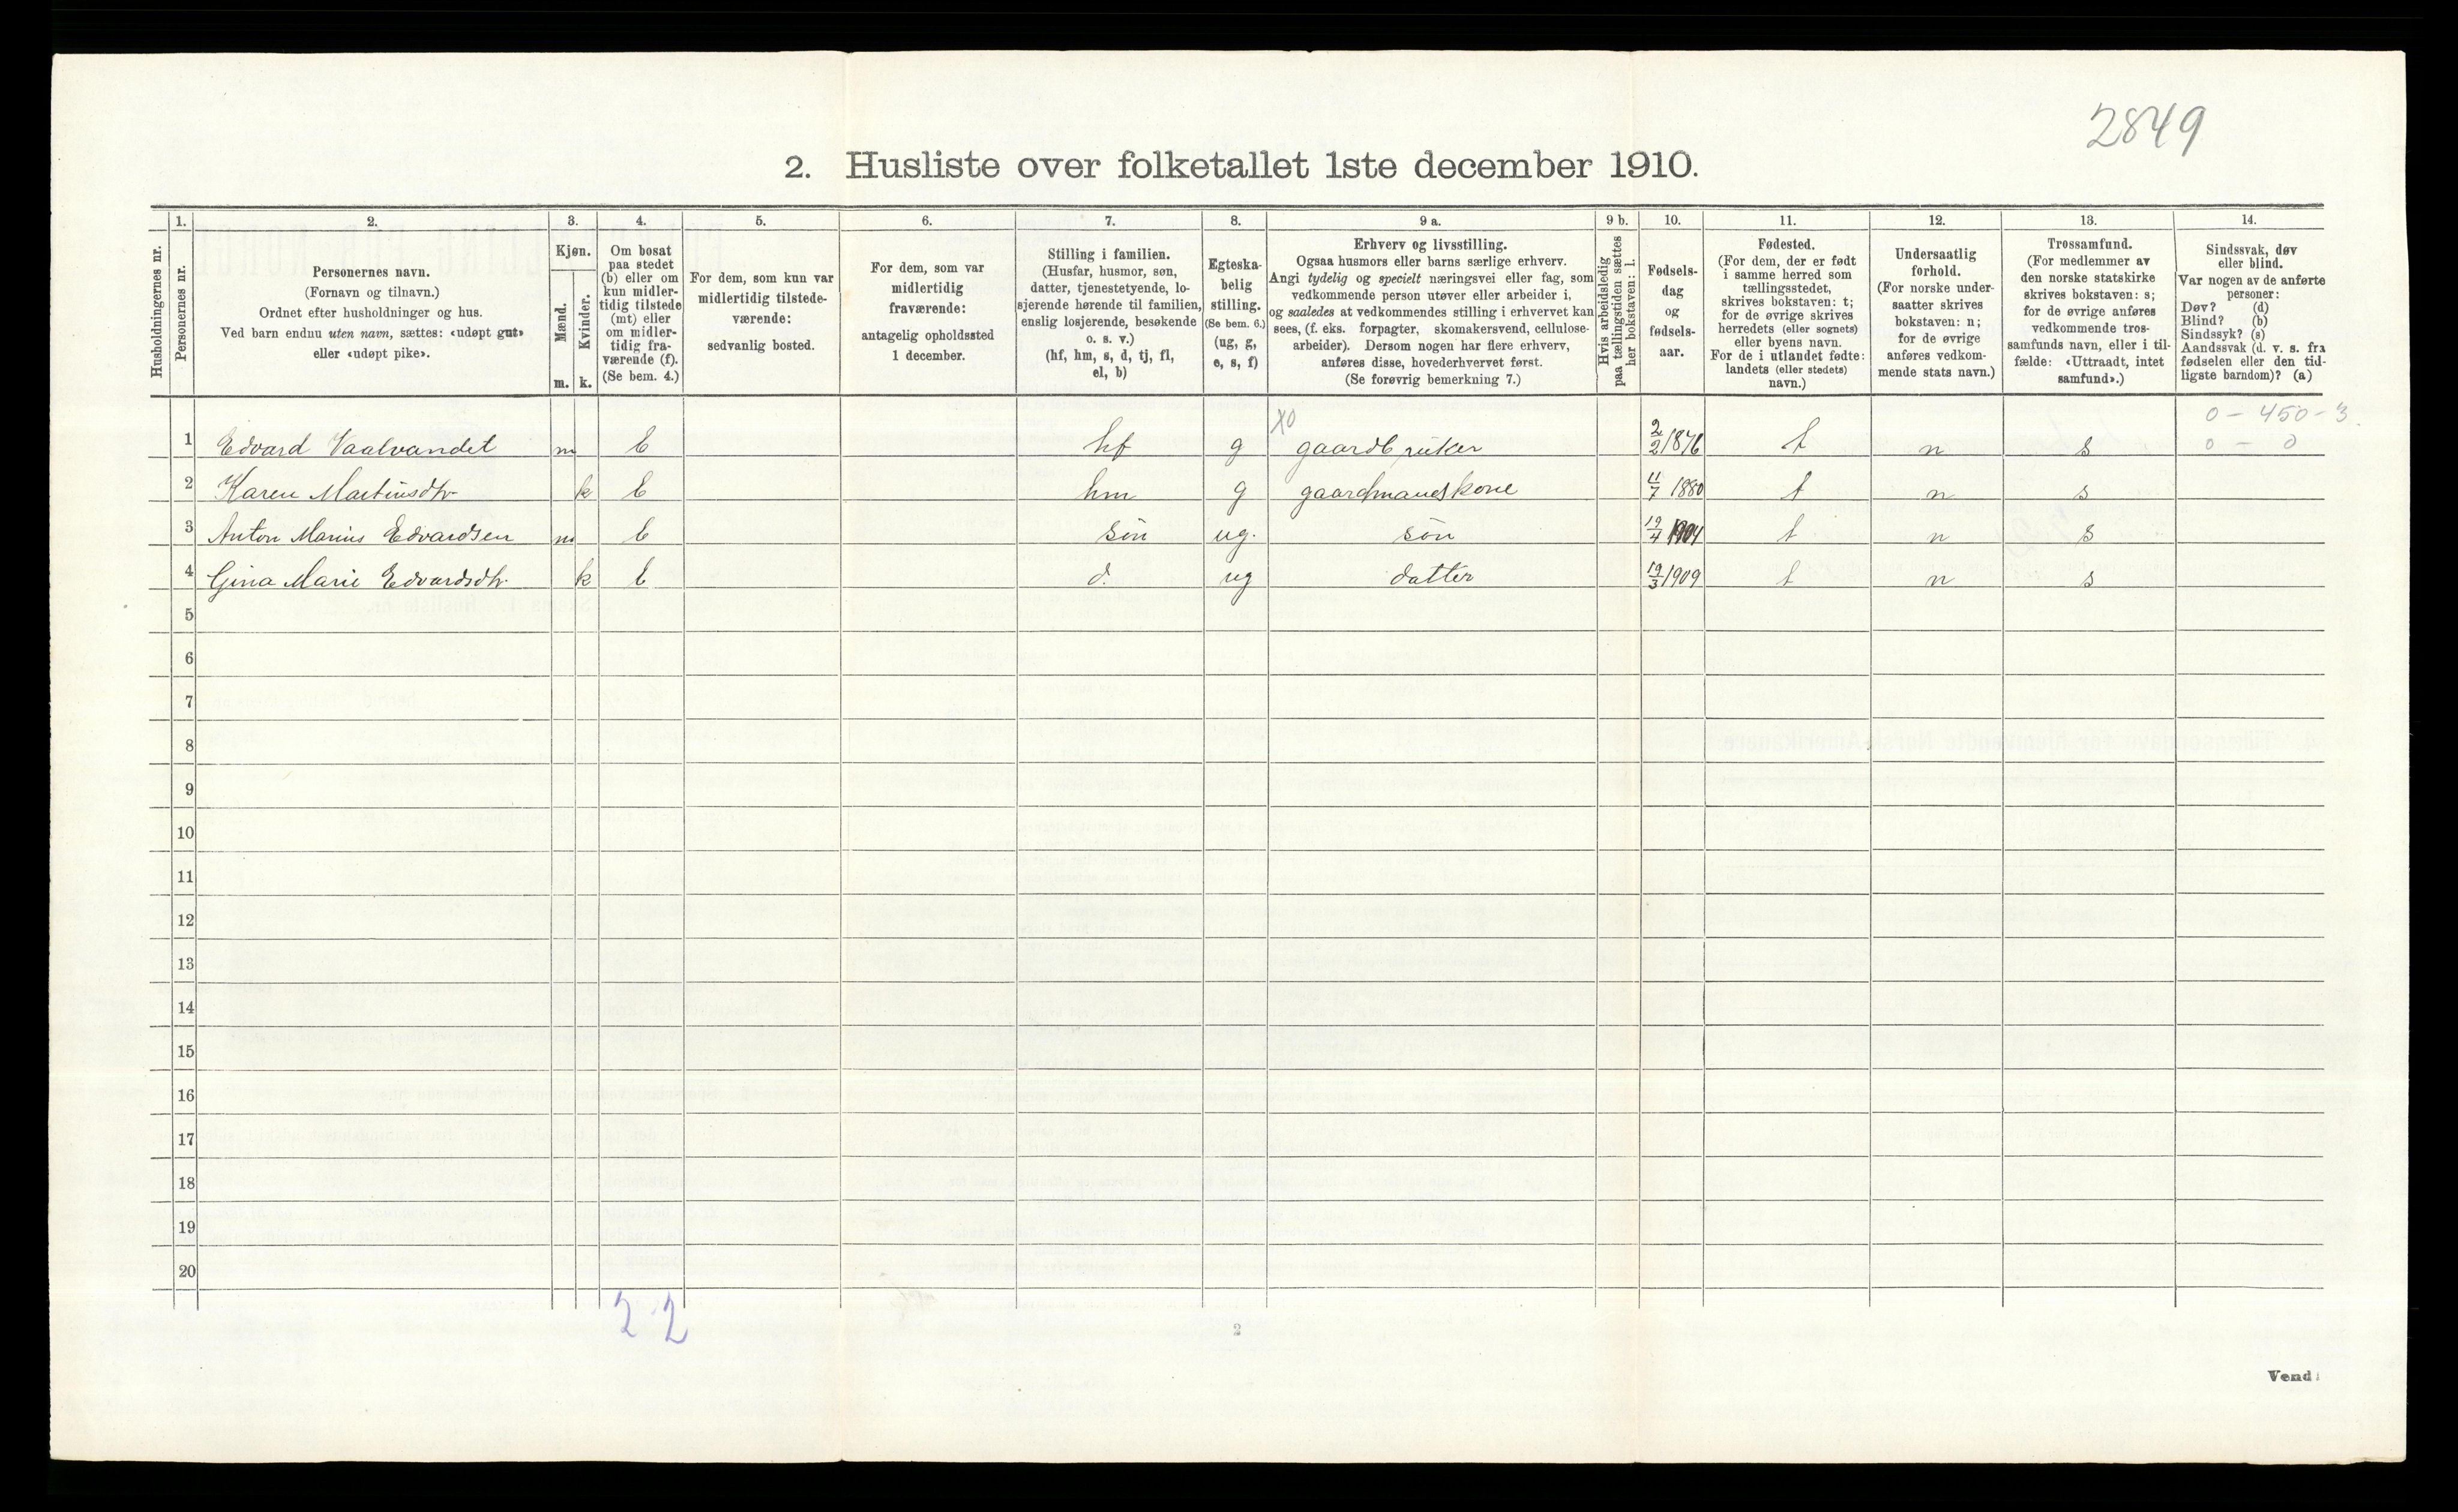 2849
2. Husliste over folketallet 1ste december 1910.
1. 2. 3. 4. 5. 6. 7. 8. 9 a. 9 b. 10. 11. 12. 13. 14.
Husholdningernes nr.
Personernes nr.
Personernes navn.
(Fornavn og tilnavn.)
Ordnet efter husholdninger og hus.
Ved barn endnu uten navn, sættes: «udøpt gut»
eller «udøpt pike».
Kjøn.
Mænd.
m.
Kvinder.
k.
Om bosat
paa stedet
(b) eller om
kun midler-
tidig tilstede
(mt) eller
om midler-
tidig fra-
værende (f).
(Se bem. 4.)
For dem, som kun var
midlertidig tilstede-
værende:
sedvanlig bosted.
For dem, som var
midlertidig
fraværende:
antagelig opholdssted
1 december.
Stilling i familien.
(Husfar, husmor, søn,
datter, tjenestetyende, lo-
sjerende hørende til familien,
enslig losjerende, besøkende
o. s. v.)
(hf, hm, s, d, tj, fl,
el, b)
Egteska-
belig
stilling.
(Se bem. 6.)
(ug, g,
e, s, f)
Erhverv og livsstilling.
Ogsaa husmors eller barns særlige erhverv.
Angi tydelig og specielt næringsvei eller fag, som
vedkommende person utøver eller arbeider i,
og saaledes at vedkommendes stilling i erhvervet kan
sees, (f. eks. forpagter, skomakersvend, cellulose-
arbeider). Dersom nogen har flere erhverv,
anføres disse, hovederhvervet først.
(Se forøvrig bemerkning 7.)
Hvis arbeidsledig
paa tællingstiden sættes
her bokstaven: l.
Fødsels-
dag
og
fødsels-
aar.
Fødested.
(For dem, der er født
i samme herred som
tællingsstedet,
skrives bokstaven: t;
for de øvrige skrives
herredets (eller sognets)
eller byens navn.
For de i utlandet fødte:
landets (eller stedets)
navn.)
Undersaatlig
forhold.
(For norske under-
saatter skrives
bokstaven: n;
for de øvrige
anføres vedkom-
mende stats navn.)
Trossamfund.
(For medlemmer av
den norske statskirke
skrives bokstaven: s;
for de øvrige anføres
vedkommende tros-
samfunds navn, eller i til-
fælde: «Uttraadt, intet
samfund».)
Sindssvak, døv
eller blind.
Var nogen av de anførte
personer:
Døv? (d)
Blind? (b)
Sindssyk? (s)
Aandssvak (d. v. s. fra
fødselen eller den tid-
ligste barndom)? (a)
X0 0 - 450 - 3.
1 Edvard Vaalvandet m b hf g gaardbruker 2/2 1876 t n s 0 - 0
2 Karen Martinsdtr k b hm g gaardmandskone 11/7 1880 t n s
3 Anton Marius Edvardsen m b søn ug. søn 19/4 1904 t n s
4 Gina Marie Edvardsdtr. k b d. ug datter 19/3 1909 t n s
5
6
7
8
9
10
11
12
13
14
15
16
17
18
19
20
2 2
2
Vend!